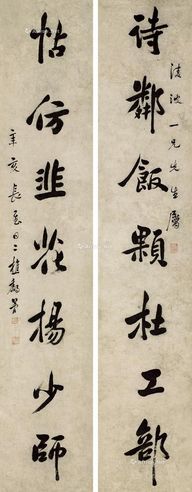 波一兄先生屬
詩鄰飯顆杜工部
帖仿韭花楊少師
辛亥長至日二樵